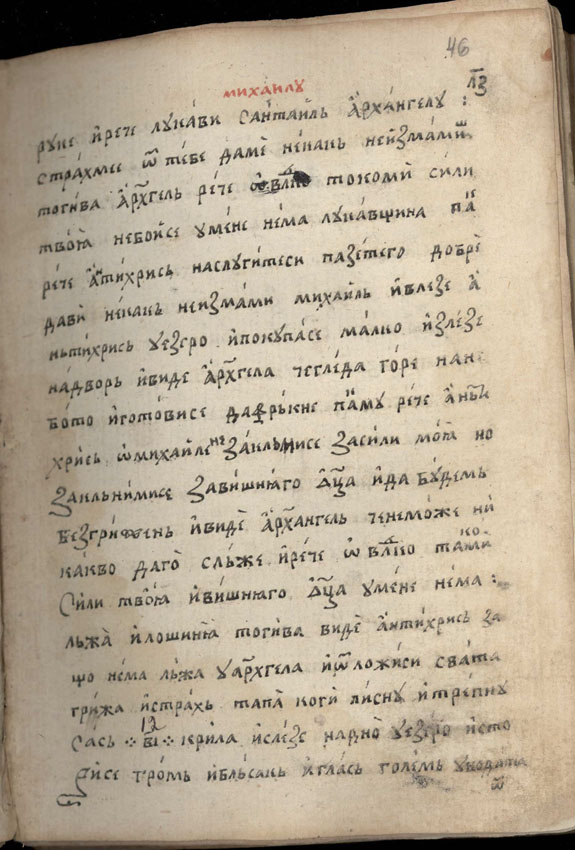 46
михаилу
л҃з
руке и҆рече лука́ви сан̾таиль а҆рха́нгелу :
стра́хмее ѿ тебе даме́ не́какь неи҆зма́ми
тоги́ва а҆рх҃гель ре́че ѡ҆ влⷣко токоми си́ли
твоꙗ̀ небои҆се умене не́ма лука́вщина па
ре́че а҆нтихрись наслуги́теси пазе́тего добрѐ
дави́ не́какь неи҆зма́ми михаиль и҆влезе а҆
нътихрись уезеро и҆покупа́се ма́лко и҆зле́зе
надворь и҆виде а҆рх҃гела чегле́да го́ре нане
бото и҆гото́висе дафръкне па́му ре́че а҆нъти
хрись ѡ҆михаиле не закльнисе заси́ли моꙗ̀ но
закльнимисе зави́шнꙗго ѡц҃а и҆да бу́демь
безгри́жень и҆видѐ а҆рх҃гель ченемо́же ни
ка́кво даго̀ сль́же и҆ре́че ѡ҆ влⷣко такоми
си́ли твоꙗ̀ и҆ви́шнꙗго ѡц҃а умене не́ма :
льжа̀ и҆лошинꙗ̀ тоги́ва видѐ а҆нти́хрись за
що не́ма льжа уа҆рх҃гела и҆ѿложи́си сва́та
гри́жа и҆стра́хь тапа̀ когѝ лисну̀ и҆тре́пну
сась ·:· в҃і ·:· 12 крила и҆сле́зе на́дно̀ уезеро и҆сто
рисе громь и҆бльсакь и҆гла́сь голе́мь уводата
ѿ